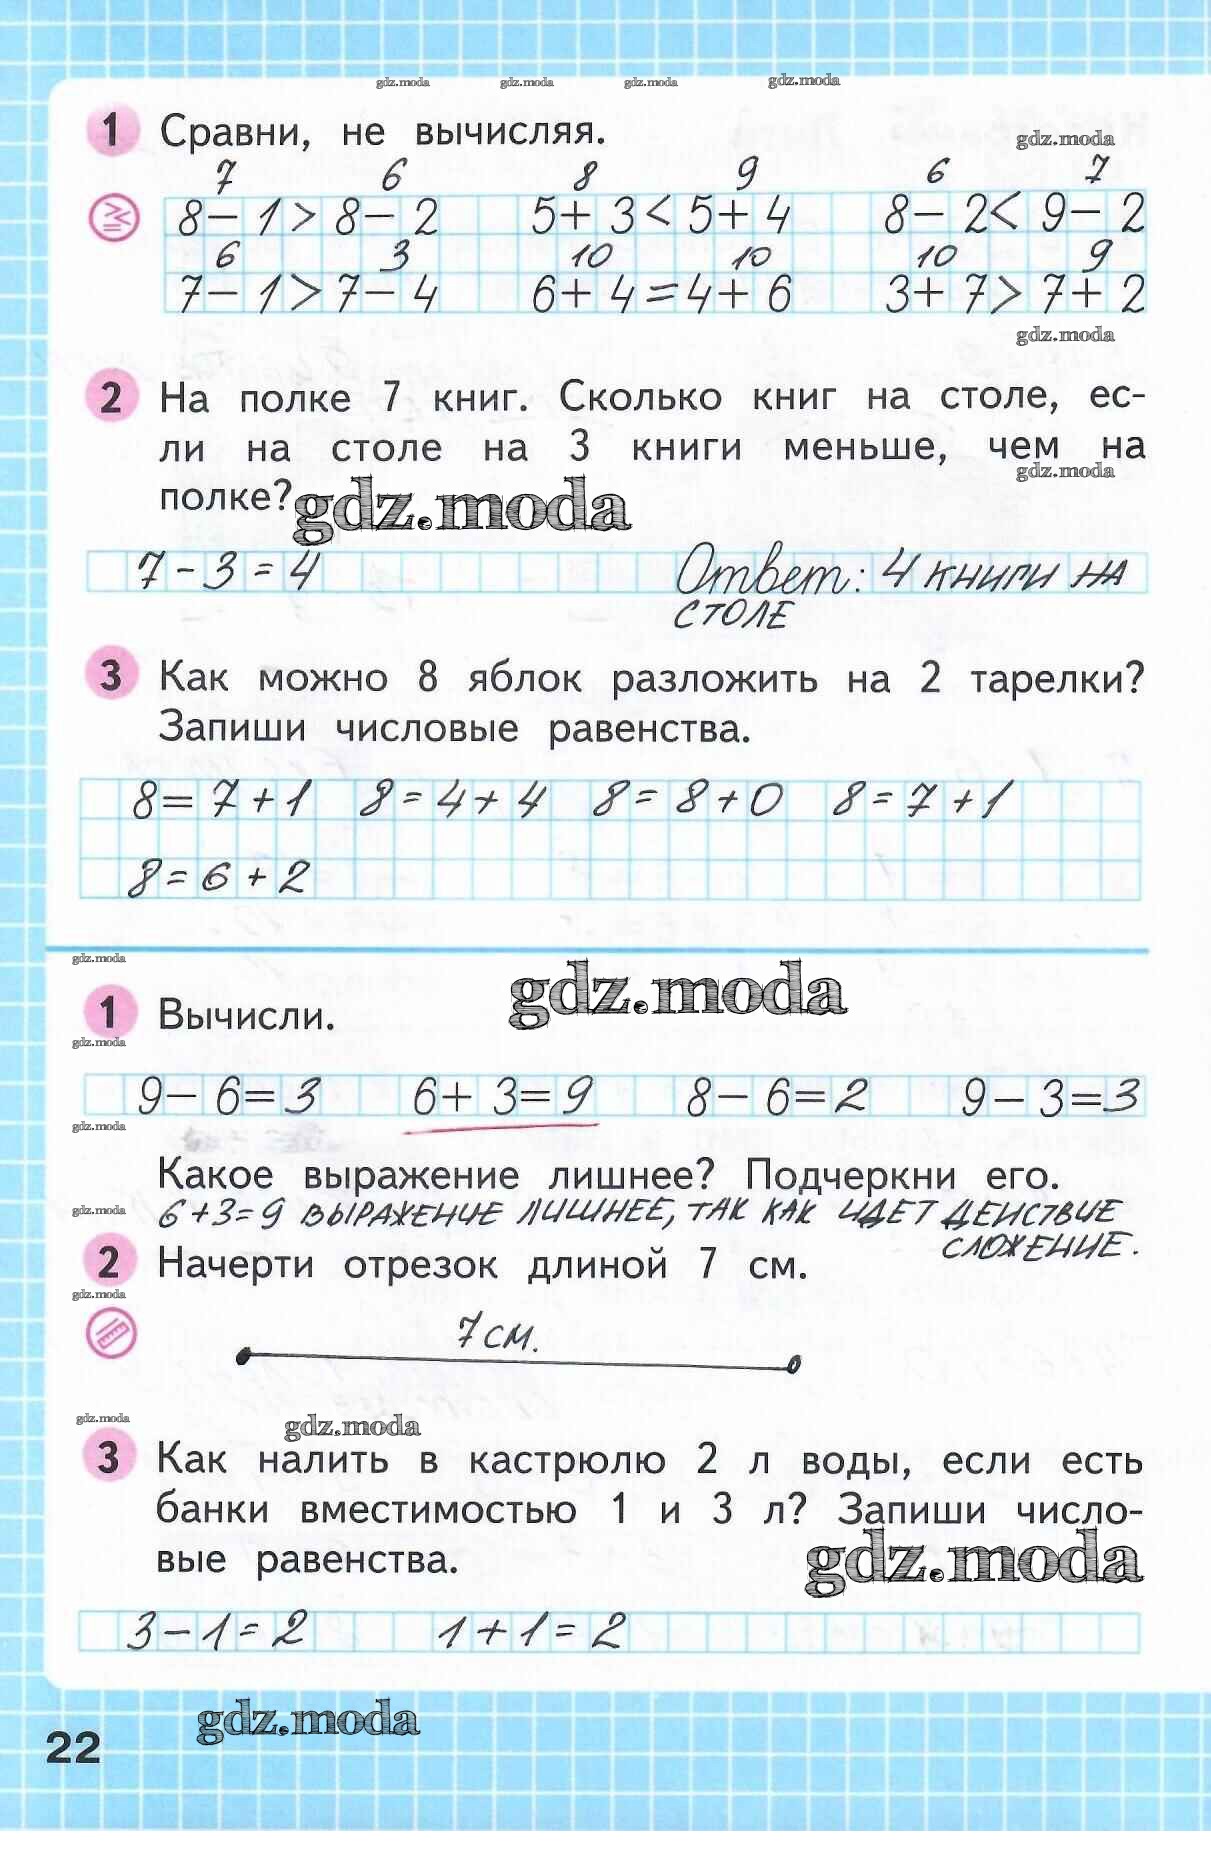 gdz.moda gdz.moda gdz.moda gdz.moda
1 Сравни, не вычисляя.
gdz.moda
7 6 8 9 6 7
8 − 1 > 8 − 2 5 + 3 < 5 + 4 8 − 2 < 9 − 2
6 3 10 10 10 9
7 − 1 > 7 − 4 6 + 4 = 4 + 6 3 + 7 > 7 + 2
gdz.moda
2 На полке 7 книг. Сколько книг на столе, ес-
ли на столе на 3 книги меньше, чем на
gdz.moda
полке?
gdz.moda
7 - 3 = 4 Ответ: 4 книги на
столе
3 Как можно 8 яблок разложить на 2 тарелки?
Запиши числовые равенства.
8 = 7 + 1 8 = 4 + 4 8 = 8 + 0 8 = 7 + 1
8 = 6 + 2
gdz.moda
gdz.moda
1 Вычисли.
gdz.moda
9 − 6 = 3 6 + 3 = 9 8 − 6 = 2 9 − 3 = 3
gdz.moda
Какое выражение лишнее? Подчеркни его.
gdz.moda
6 + 3 = 9 выражение лишнее, так как идет действие
сложение.
2 Начерти отрезок длиной 7 см.
gdz.moda
7 см.
gdz.moda
gdz.moda
3 Как налить в кастрюлю 2 л воды, если есть
банки вместимостью 1 и 3 л? Запиши число-
вые равенства.
gdz.moda
3 − 1 = 2 1 + 1 = 2
gdz.moda
22